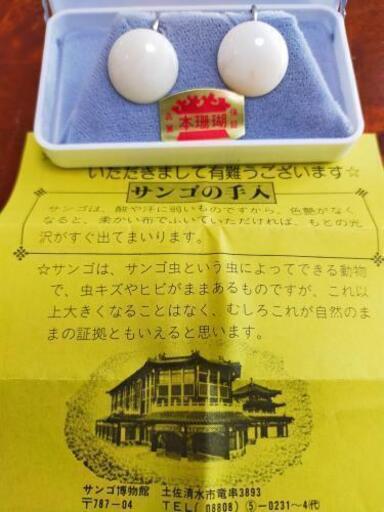 本珊瑚
いただきまして有難うございます☆
サンゴの手入
サンゴは、酸や汗に弱いものですから、色艶がなく
なると、柔かい布でふいていただければ、もとの光
沢がすぐ出てまいります。
☆サンゴは、サンゴ虫という虫によってできる動物
で、虫キズやヒビがままあるものですが、これ以
上大きくなることはなく、むしろこれが自然のま
まの証拠ともいえると思います。
サンゴ博物館 土佐清水市竜串3893
〒787-04 TEL(08808)⑤-0231~4代